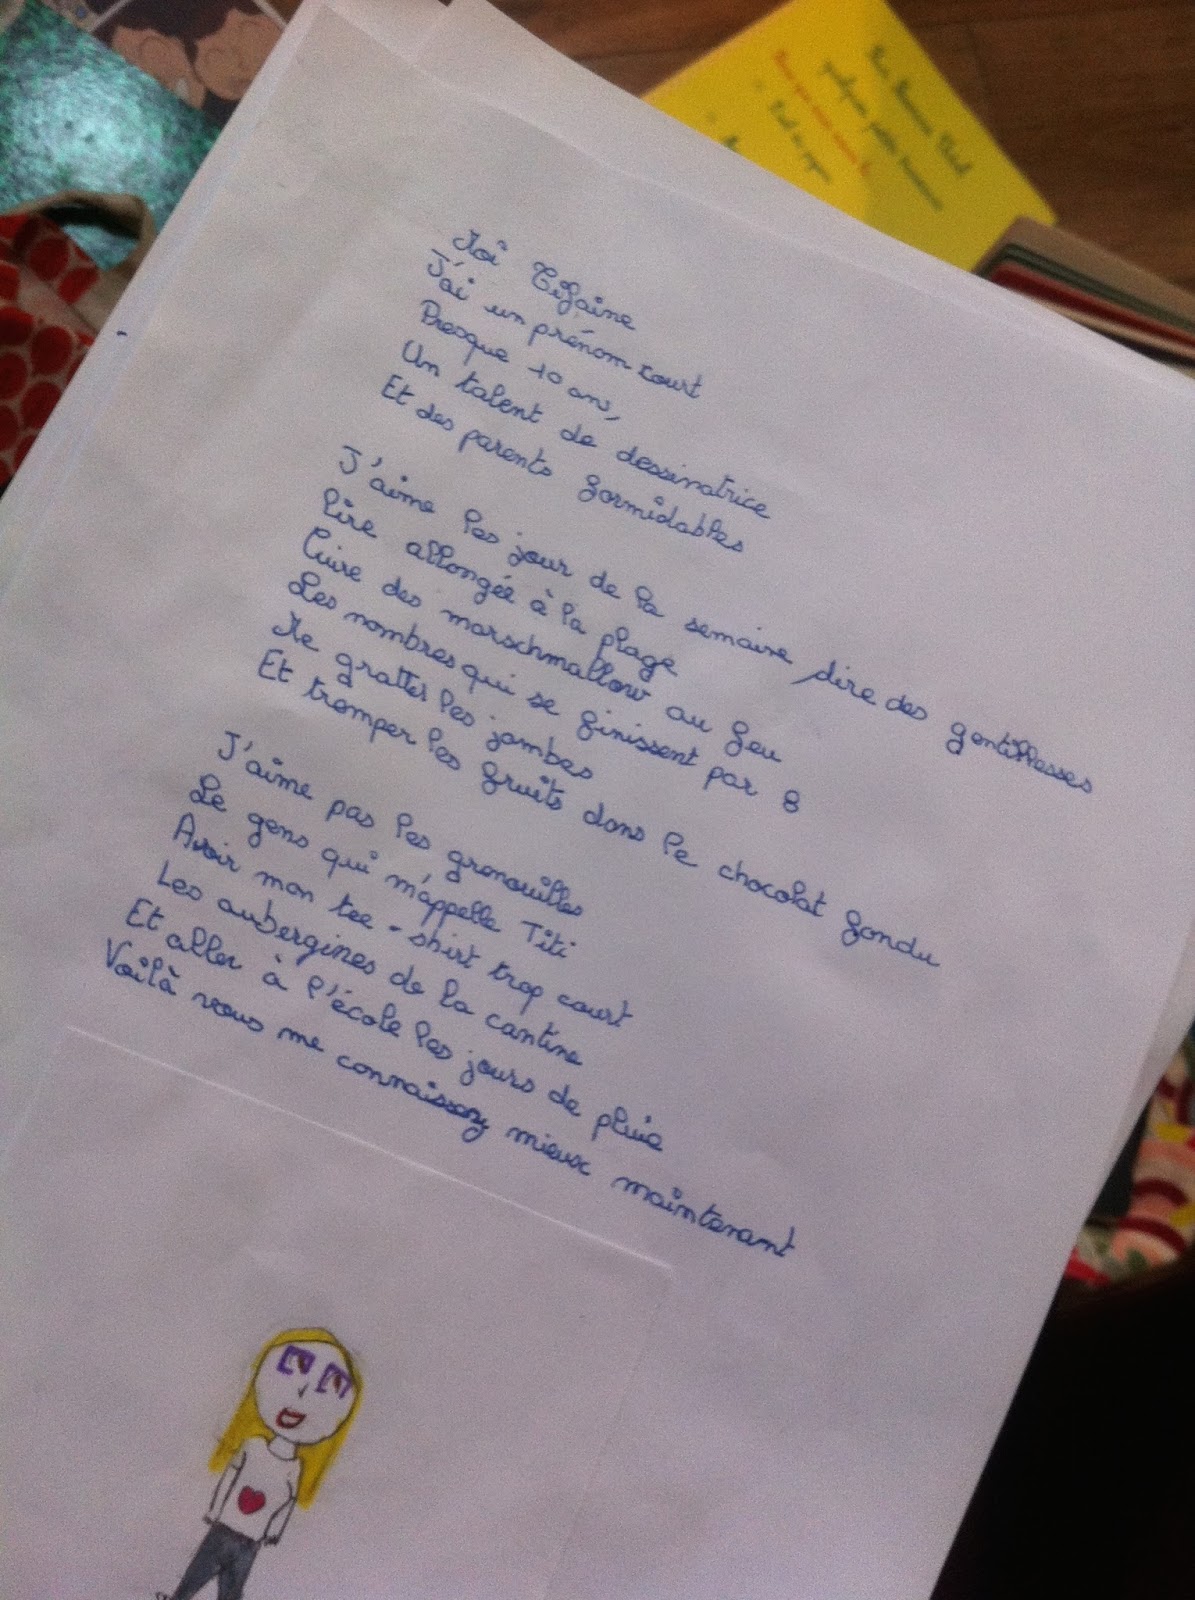 Moi Tifaine
J'ai un prénom court
Presque 10 ans,
Un talent de dessinatrice
Et des parents formidables
J'aime les jour de la semaine dire des gentillesses
Lire allongée à la plage
Cuire des marschmallow au feu
Les nombres qui se finissent par 8
Me gratter les jambes
Et tremper les fruits dans le chocolat fondu
J'aime pas les grenouilles
Le gens qui m'appelle Titi
Avoir mon tee-shirt trop court
Les aubergines de la cantine
Et aller à l'école les jours de pluie
Voilà vous me connaissez mieux maintenant